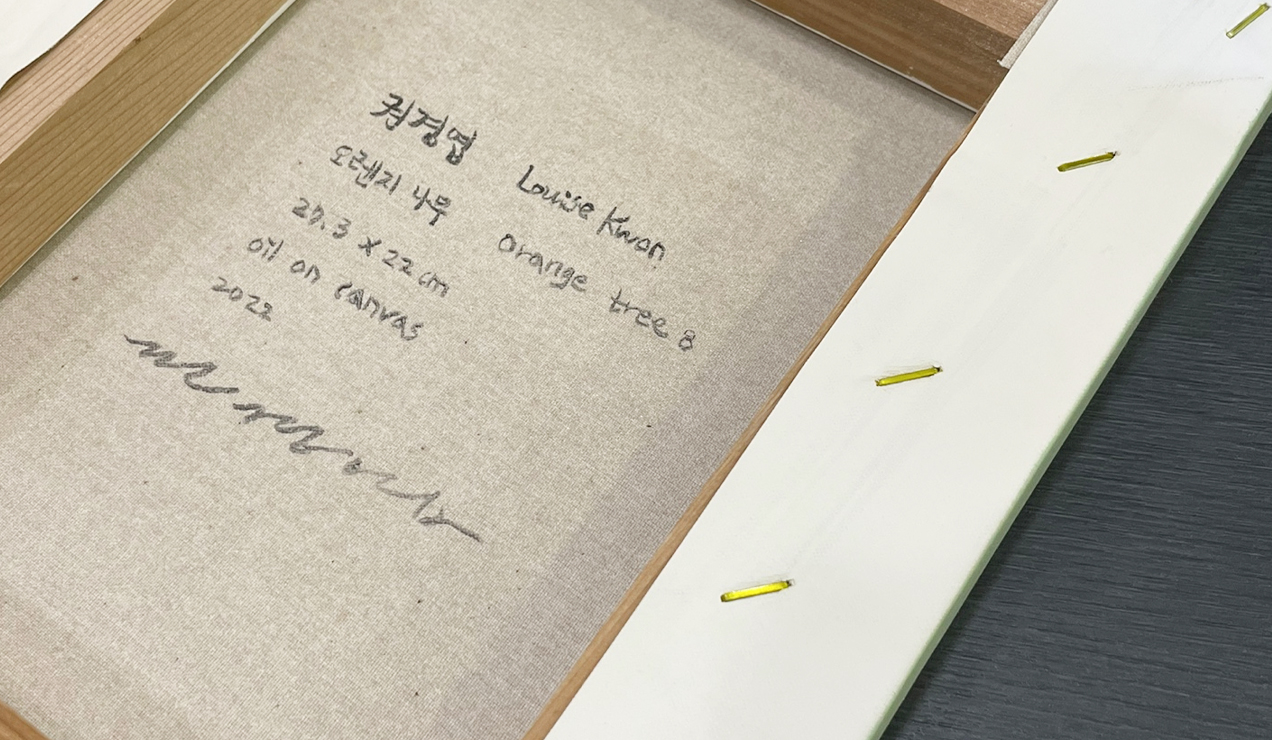 권경엽 Louise Kwon
오렌지 나무 orange tree 8
27.3 x 22 cm
oil on canvas
2022